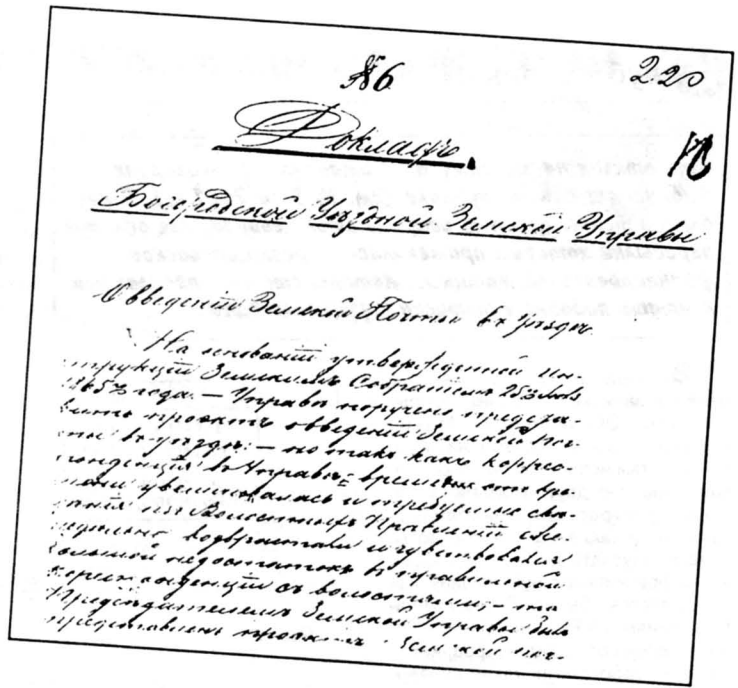 №6. 220
Докладъ.
Богородской Уѣздной Земской Управы
О введеніи Земской Почты въ уѣздѣ.
На основаніи утвержденной ин-
струкціи Земскимъ Собраніемъ 25
1865 года. — Управѣ поручено предста-
вить проэктъ о введеніи Земской поч-
ты въ уѣздѣ: — но такъ какъ коррес-
понденція въ Управѣ время отъ вре-
мени увеличивалась и требуемыя свѣ-
отъ Волостныхъ Правленій
и чувствовался
большой недостатокъ въ правильной
кореспонденціи съ волостями; — то
Предсѣдателемъ Земской Управы былъ
представленъ проэктъ Земской поч-